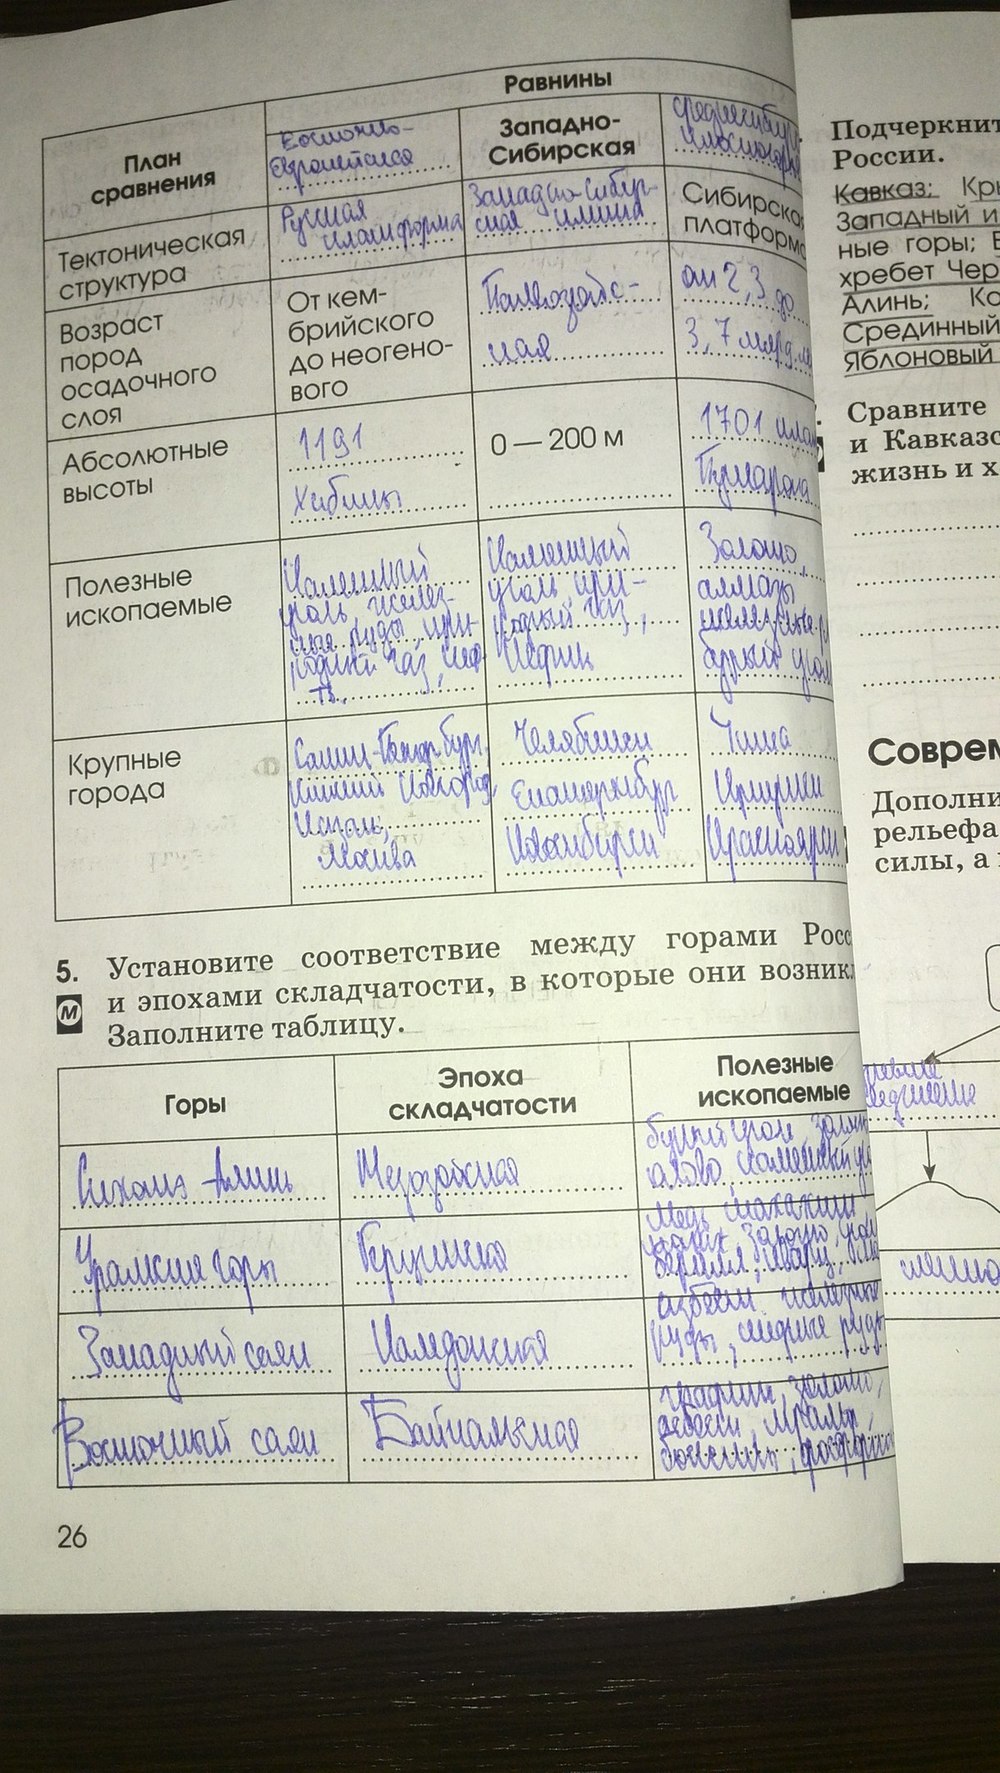 Равнины
План
сравнения
Восточно-
Европейская
Западно-
Сибирская
Тектоническая
структура
Русская
платформа
Западно-Сибир-
ская плита
Сибирская
платформа
Возраст
пород
осадочного
слоя
От кем-
брийского
до неогено-
вого
Палеозойс-
кая
от 2,3 до
3,7 млрд.
Абсолютные
высоты
1191
Хибины
0 — 200 м
1701
Полезные
ископаемые
Каменный
уголь, желез-
ные руды, при-
родный газ, неф-
ть.
Каменный
уголь, при-
родный газ,
Нефть
Золото,
алмазы
бурый
Крупные
города
Санкт-Петербург,
Нижний Новгород,
Казань,
Москва
Челябинск
Екатеринбург
Новосибирск
Чита
Иркутск
Красноярск
5. Установите соответствие между горами Росс
и эпохами складчатости, в которые они возник
М Заполните таблицу.
Горы
Эпоха
складчатости
Полезные
ископаемые
Сихотэ-Алинь
Мезозойская
бурый уголь,
олово, каменный
Уральские горы
Герцинская
Медь малахит
золото,
кварц,
Западный саян
Каледонская
асбест железные
руды, медные руды
Восточный саян
Байкальская
графит, золото,
мрамор,
бокситы,
26
Подчеркнит
России.
Кавказ; Кры
Западный и
ные горы; В
хребет Чер
Алинь; Ка
Срединный
Яблоновый
Сравните
и Кавказс
жизнь и х
Соврем
Дополни
рельефа
силы, а